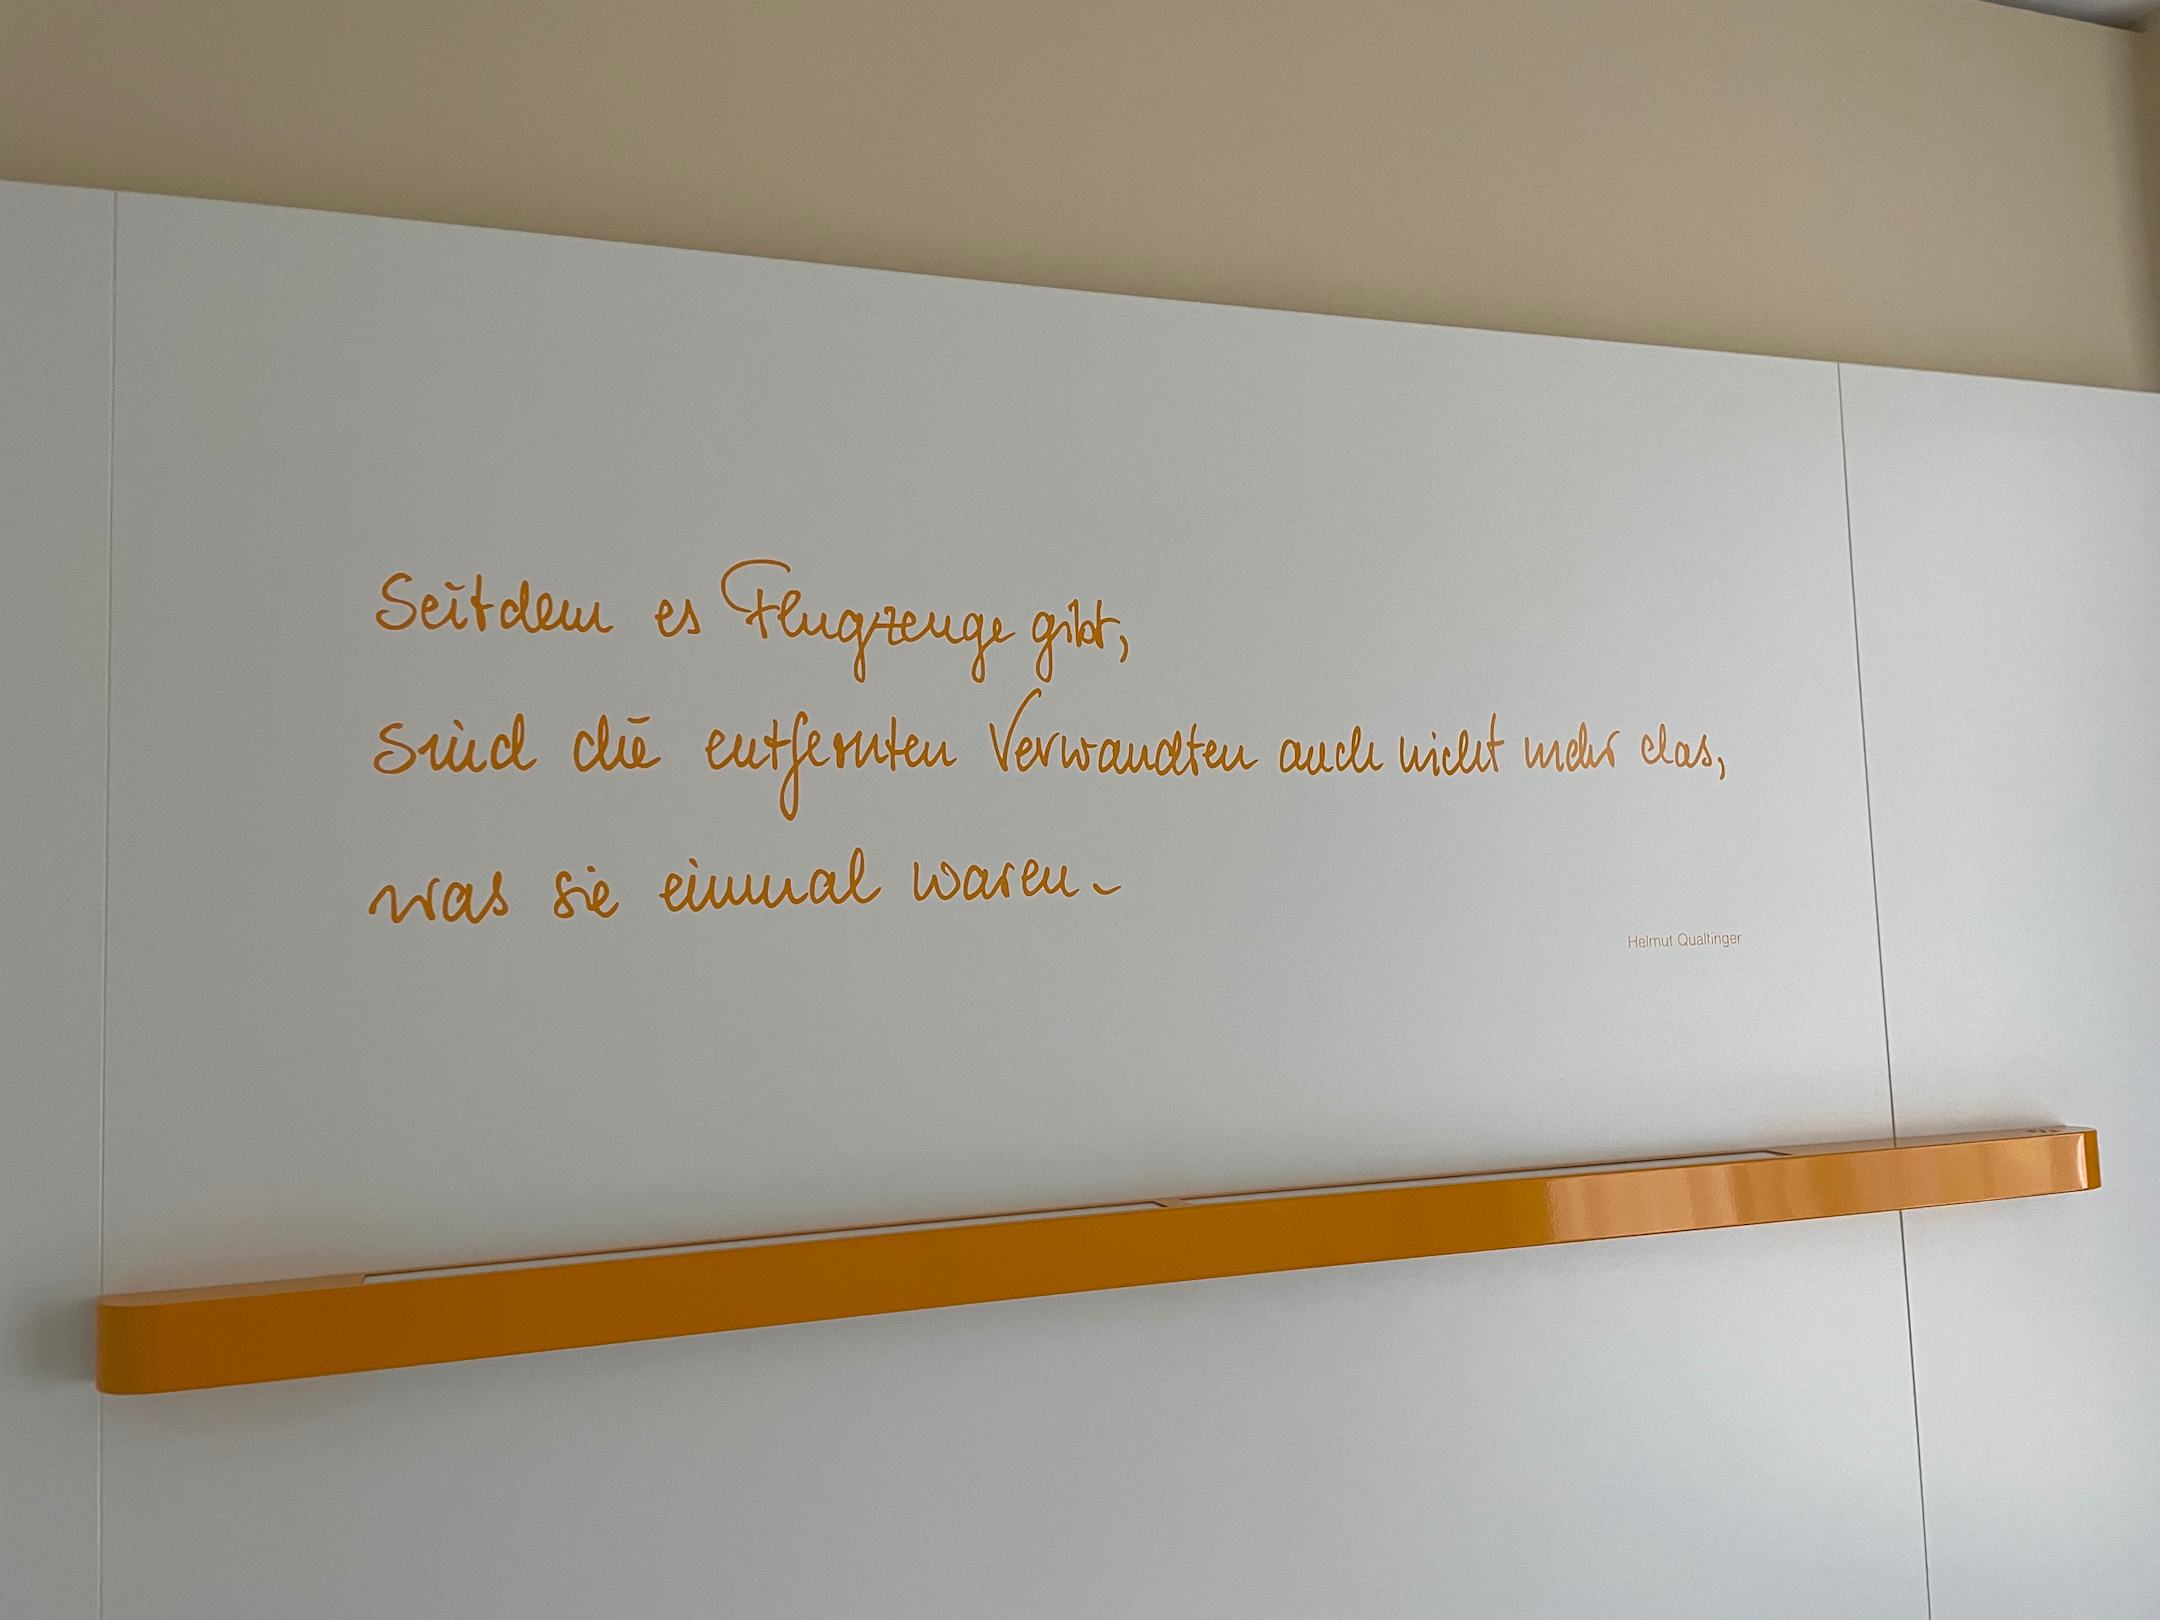 Seitdem es Flugzeuge gibt,
sind die entfernten Verwandten auch nicht mehr das,
was sie einmal waren.
Helmut Qualtinger